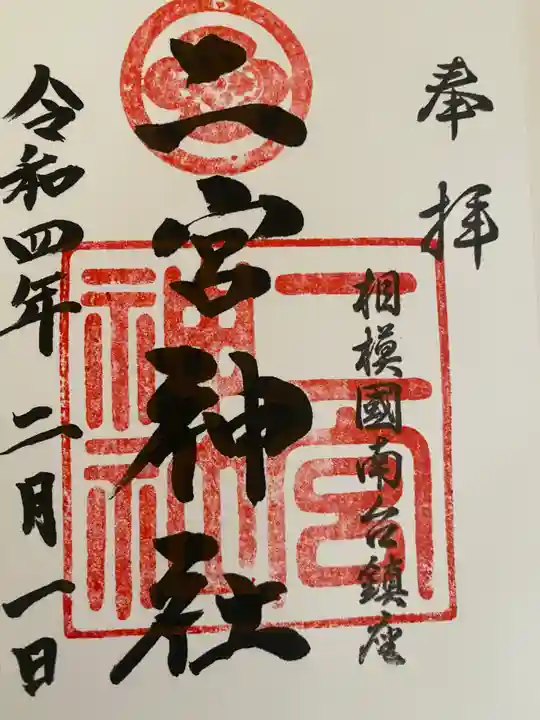 奉拝
相模國南台鎮座
二宮神社
二宮神社
令和四年 二月一日